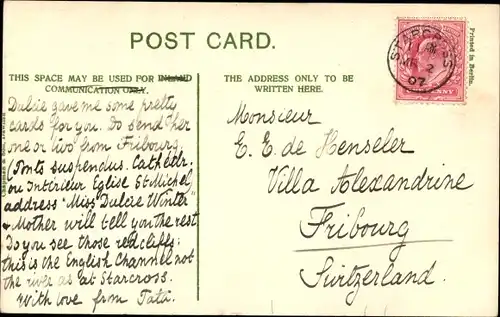 POST CARD.
THIS SPACE MAY BE USED FOR INLAND
COMMUNICATION ONLY.
Dulcie gave me some pretty
cards for you. Do send her
one or two from Fribourg
Ponts suspendus. Cathédr.
ou Intérieur Eglise St Michel
address "Miss Dulcie Winter"
Mother will tell you the rest.
Do you see those red cliffs;
this is the English Channel not
the river as at Starcross.
With love from Tata.
THE ADDRESS ONLY TO BE
WRITTEN HERE.
Monsieur
E. E. de Henseler
Villa Alexandrine
Fribourg
Switzerland.
STARCROSS
2
07
PENNY
Printed in Berlin.